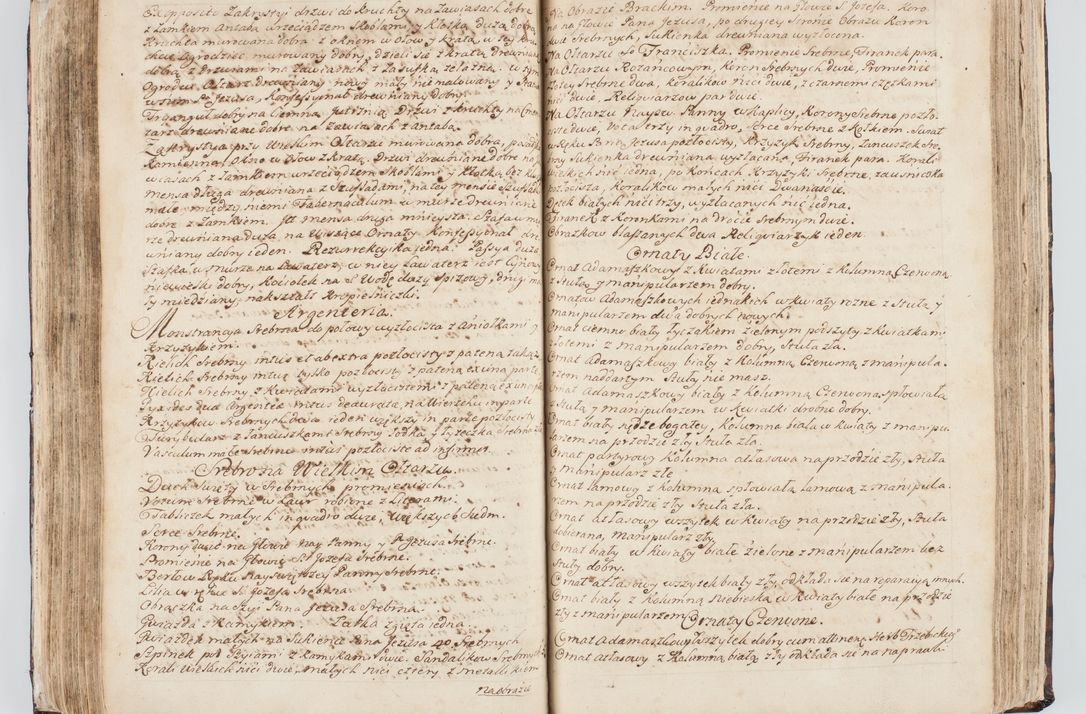 Ex opposito Zakrystyi drzwi do kruchty na zawiasach dobre
z zamkiem Antaba wrzeciądzem Skoblami y Klotka duza dobra
Kruchta murowana dobra z oknem w ołow y krata, w tey
Ogrodziec murowany dobry, dzieli się z krata drewniana
dobra z drzwiami na zawiasach y zasufka zelazna w tym
Ogrodcu Ołtarz drewniany nowy mały nie malowany y
Pana Jezusa, Konfesyonał drewniany dobry
Tryangul dobry na Ciemna Jutrznią. Drzwi z kruchty na Cmen
tarz drewniane dobre na zawiasach z antaba.
Zakrystya przy Wielkim Ołtarzu murowana dobra,
kamienna Okno w ołow z Krata, Drzwi drewniane dobre na
wiasach z zamkiem wrzeciądzem Skoblami y Klotką bez
mensa długa drewniana z Szufladami, na tey mensie Szufladki
małe między niemi Tabernaculum w murze drewniane
dobre z zamkiem. It mensa druga mnieysza. Szafa w mu
rze drewniana duza na wiszące Ornaty Konfesyonał dre
wniany dobry ieden. Rezurrekcyika iedna. Passya duza
Szafka w murze na Lawaterz, w niey Lawaterz iest Cynowy
niewielki dobry, Kociołek na S. Wodę duzy Spizowy, drugi ma
ły miedziany na kształt Kropielniczki.
Argenteria.
Monstrancya Srebrna do połowy wyzłocista z Aniołkami y
Krzyzykiem.
Kielich Srebrny intus et ab extra pozłocisty z patena takąz
Kielich Srebrny intus tylko pozłocisty z patena ex una parte
Kielich Srebrny z Kwiatami wyzłocistem z patena ex una
Pyxides duæ Argenteæ intus deauratæ, na Wierzchu in parte
Krzyzykow Srebrnych dwa ieden większy in parte pozłocisty
Turybularz z Łancuszkami Srebrny Łodka y Łyzeczka Srebrna
Vasculum małe Srebrne intus pozłociste ad infirmos.
Srebro na Wielkim Ołtarzu.
Duch Swięty w Srebrnych promieniach.
Votum Srebrne w Laur robione z Literami.
Tabliczek małych in quadro duze, Większych Siedm.
Serce Srebrne.
Korony dwie na głowie Nay Panny y P. Jezusa Srebrne.
Promienie na głowie S. Jozefa Srebrne.
Berło w Ręku Nayswiętszey Panny Srebrne.
Lilia w ręce S. Jozefa Srebrna.
Obrączka na Szyi Pana Jezusa Srebrna.
Gwiazda z kamykiem. Łatka zgięta iedna.
Gwiazdek małych na Sukience Pana Jezusa 40 Srebrnych
Szpinek pod Szyiami z kamykami dwie. Sandalikow Srebrnych
Korali Wielkich nici dwie, małych nici cztery z medalikiem
Na obrazie
Na Obrazie Brackim. Promienie na głowie S. Jozefa. Koro
na na głowie Pana Jezusa, po drugiey Stronie Obrazu Koron
dwie Srebrnych, Sukienka drewniana wyzłocona.
Na Ołtarzu S. Franciszka. Promienie Srebrne, Firanek para
Na Ołtarzu Rozańcowym. Koron Srebrnych dwie, Promienie
Srebrne dwa, koralikow nici dwie, z czarnemi częstkami
nici dwie, Religwiarzow par dwie.
Na Ołtarzu Nayśw. Panny w Kaplicy, Korony Srebrne pozło
ciste dwie, Vota trzy in quadro, Serce Srebrne z Kołkiem. Swiat
w Ręku Pana Jezusa pozłocisty, Krzyzyk Srebrny, Łancuszek Sre
brny Sukienka drewniana wyzłacana, Firanek para. Korali
wielkich nić iedna, po Koncach Krzyzyk Srebrne, zausnicka
pozłocista, koralikow małych nici Dwanascie.
Perek białych nici trzy, wyzłacanych nić iedna.
Firanek z Koronkami na drocie Srebrnym dwie.
Obrazkow blaszanych dwa Religwiarzyk ieden.
Ornaty Białe.
Ornat Adamaszkowy z Kwiatami złotemi z kolumna Czerwona
z Stułą y manipularzem dobry.
Ornatow Adamaszkowych iednakich w Kwiaty rozne z Stułą y
manipularzem dwa dobrych nowych.
Ornat ciemno biały łyczakiem zielonym podszyty z kwiatkami
złotemi z manipularzem dobry, Stuła zła.
Ornat Adamaszkowy biały z Kolumną Czerwoną z manipula
rzem naddartym Stuły nie masz.
Ornat Adamaszkowy biały z Kolumną Czerwoną spłowiałą
z Stułą y manipularzem w Kwiatki drobne dobry.
Ornat biały bogatey, Kolumna biała w kwiaty z manipu
larzem na przodzie zły, Stuła zła.
Ornat parterowy Kolumna atłasowa na przodzie zły, Stuła
y manipularz złe.
Ornat Lamowy z Kolumną spłowiałą Lamową z manipula
rzem na przodzie zły Stuła zła.
Ornat atłasowy wszytek w Kwiaty na przodzie zły, Stuła
dobierana, manipularz zły.
Ornat biały w kwiaty białe zielone z manipularzem bez
Stuły dobry.
Ornat atłasowy wszytek biały zły, odkłada się na reparacyą innych.
Ornat biały z Kolumną Niebieską w Kwiaty białe na przodzie
zły z manipularzem. Ornaty Czerwone.
Ornat Adamaszkowy wszytek dobry cum attinen: Herb Trzebickiego
Ornat atłasowy z Kolumną białą zły odkłada się na naprawki